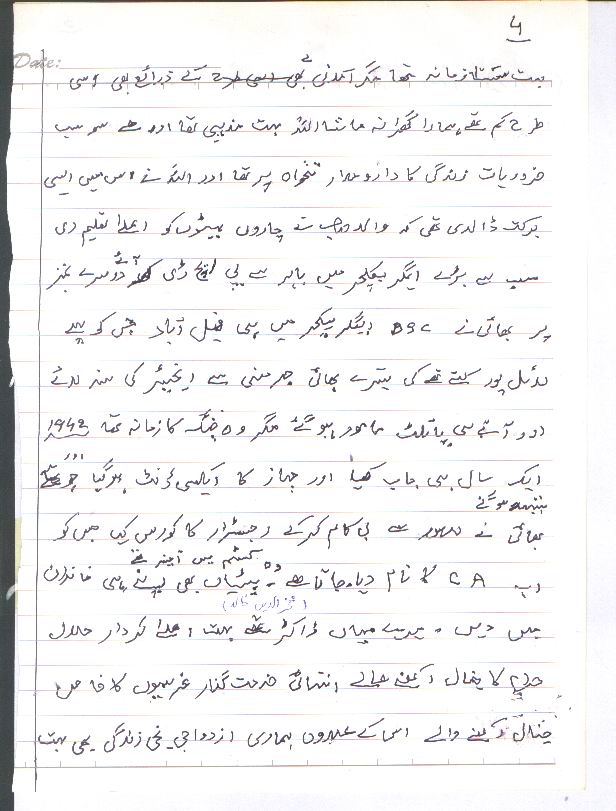 4
Date:
بہت سستا زمانہ تھا مگر آمدنی کے ذرائع بھی اسی
طرح کم تھے ہمارا گھرانہ ماشااللہ بہت مذہبی تھا اور سب
ضروریات زندگی کا دارومدار تنخواہ پر تھا اور اللہ نے اس میں ایسی
برکت ڈالدی تھی کہ والد صاحب نے چاروں بیٹوں کو اعلا تعلیم دی
سب سے بڑے ایگریکلچر میں باہر سے پی ایچ ڈی آئے دوسرے نمبر
پر بھائی نے BSC ایگریکلچر میں ہی فیصل آباد جس کو پہلے
لائل پور کہتے تھے کی تیسرے بھائی جرمنی سے انجینئر کی سند لائے
اور آتے ہی پائلٹ مامور ہوگئے مگر وہ جنگ کا زمانہ تھا 1942
ایک سال ہی جاب کیا اور جہاز کا ایکسیڈنٹ ہوگیا اور
شہید ہوگئے
بھائی نے لاہور سے بی کام کرکے رجسٹرار کا کورس کیا جس کو
اب CA کا نام دیا جاتا ہے وہ کسٹم میں آفیسر تھے بیٹیاں بھی اپنے ہی خاندان
میں دیں ۔ میرے میاں ڈاکٹر تھے بہت اعلا کردار حلال
حرام کا خیال رکھنے والے انتہائی خدمت گذار غریبوں کا خاص
خیال رکھنے والے اس کے علاوہ ہماری ازدواجی نجی زندگی بھی بہت